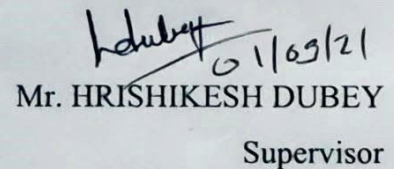 01/09/21
Mr. HRISHIKESH DUBEY
Supervisor